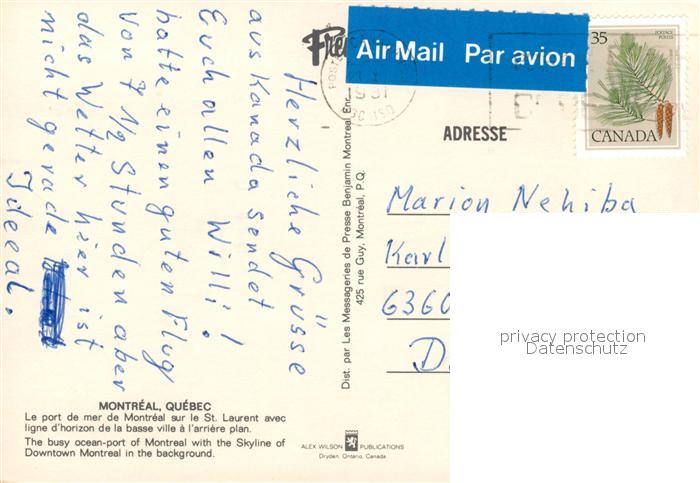 Herzliche Grüsse
aus Kanada sendet
Euch allen Willi!
hatte einen guten Flug
von 7 1/2 Stunden aber
das Wetter hier ist
nicht gerade
Ideeal.
Air Mail Par avion
35
POSTAGE
POSTES
CANADA
ADRESSE
Marion Nehiba
Karl
6360
D.
privacy protection
Datenschutz
Dist. par Les Messageries de Presse Benjamin Montreal Enr.
425 rue Guy, Montréal, P.Q.
MONTRÉAL, QUÉBEC
Le port de mer de Montréal sur le St. Laurent avec
ligne d'horizon de la basse ville à l'arrière plan.
The busy ocean-port of Montreal with the Skyline of
Downtown Montreal in the background.
ALEX WILSON PUBLICATIONS
Dryden, Ontario, Canada